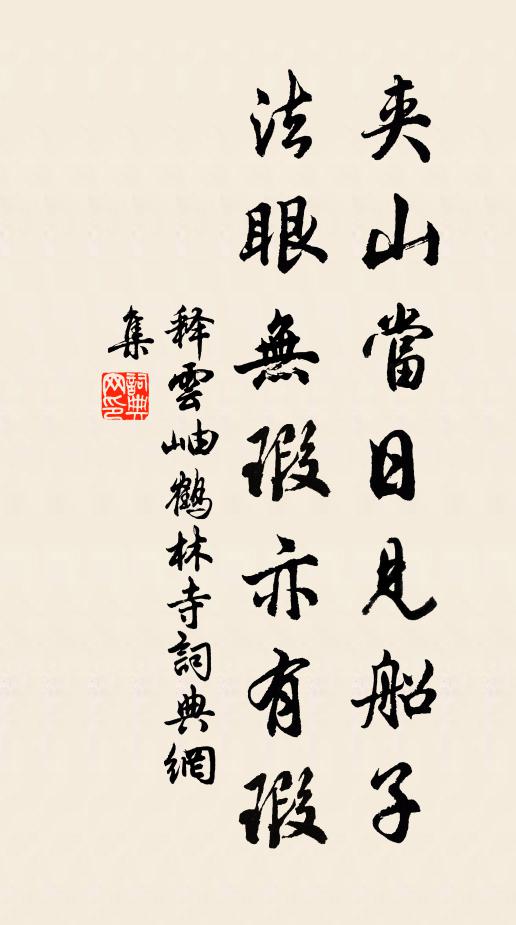 夾山當日見船子
法眼無瑕亦有瑕
釋雲岫鶴林寺詞典網
集
詞典網印